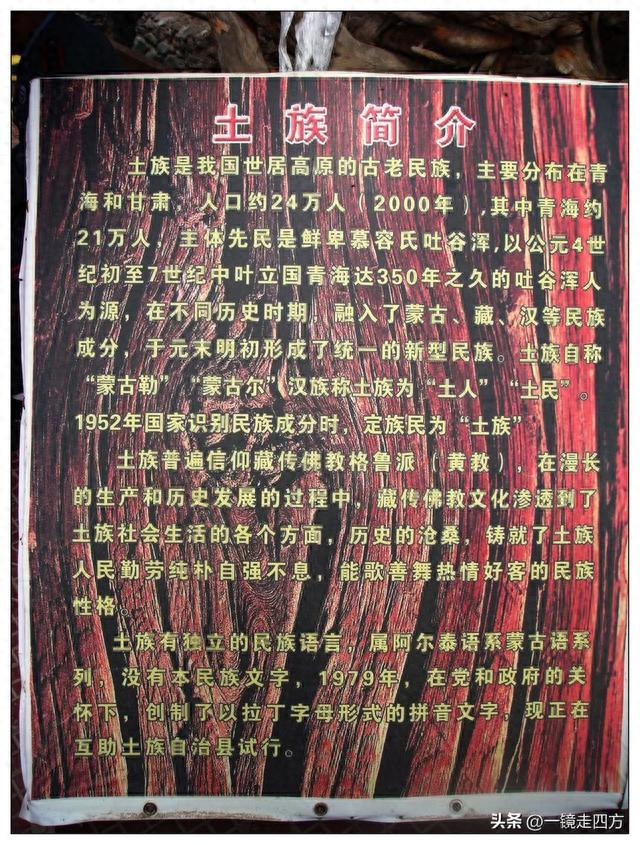 土族简介
土族是我国世居高原的古老民族，主要分布在青
海和甘肃，人口约24万人（2000年）,其中青海约
21万人，主体先民是鲜卑慕容氏吐谷浑,以公元4世
纪初至7世纪中叶立国青海达350年之久的吐谷浑人
为源，在不同历史时期，融入了蒙古、藏、汉等民族
成分，于元末明初形成了统一的新型民族。土族自称
“蒙古勒”“蒙古尔”汉族称土族为“土人”“土民”。
1952年国家识别民族成分时，定族民为“土族”
土族普遍信仰藏传佛教格鲁派（黄教），在漫长
的生产和历史发展的过程中，藏传佛教文化渗透到了
土族社会生活的各个方面，历史的沧桑，铸就了土族
人民勤劳纯朴自强不息，能歌善舞热情好客的民族
性格。
土族有独立的民族语言，属阿尔泰语系蒙古语系
列，没有本民族文字，1979年，在党和政府的关
怀下，创制了以拉丁字母形式的拼音文字，现正在
互助土族自治县试行。
头条@一镜走四方